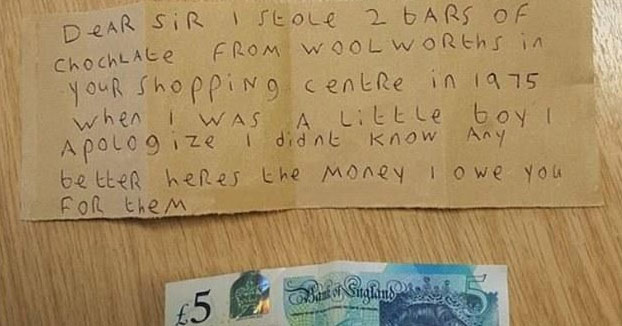 DeAR SiR I StOLe 2 bARS OF
ChOChLAte FROM WOOLWORths in
YOUR Shopping centRe in 1975
When I WAS A Little boy I
Apologize I didnt Know Any
betteR heRes the Money I owe you
FOR theM
£5
Bank of England
5